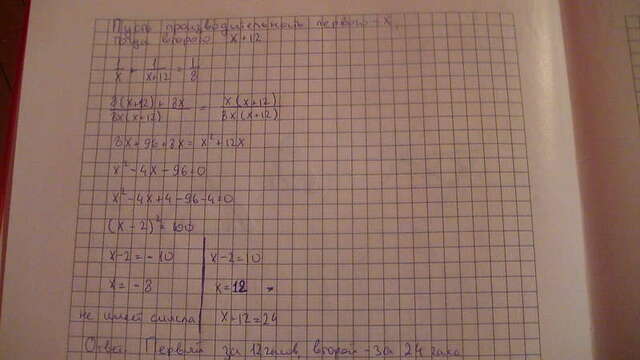 Пусть производительность первого - x,
тогда второго x+12
1/x + 1/(x+12) = 1/8
(8(x+12)+8x)/(8x(x+12)) = (x(x+12))/(8x(x+12))
8x+96+8x=x²+12x
x²-4x-96=0
x²-4x+4-96-4=0
(x-2)²=100
x-2=-10 x-2=10
x=-8 x=12
не имеет смысла x+12=24
Ответ: Первый за 12 часов, второй - за 24 часа